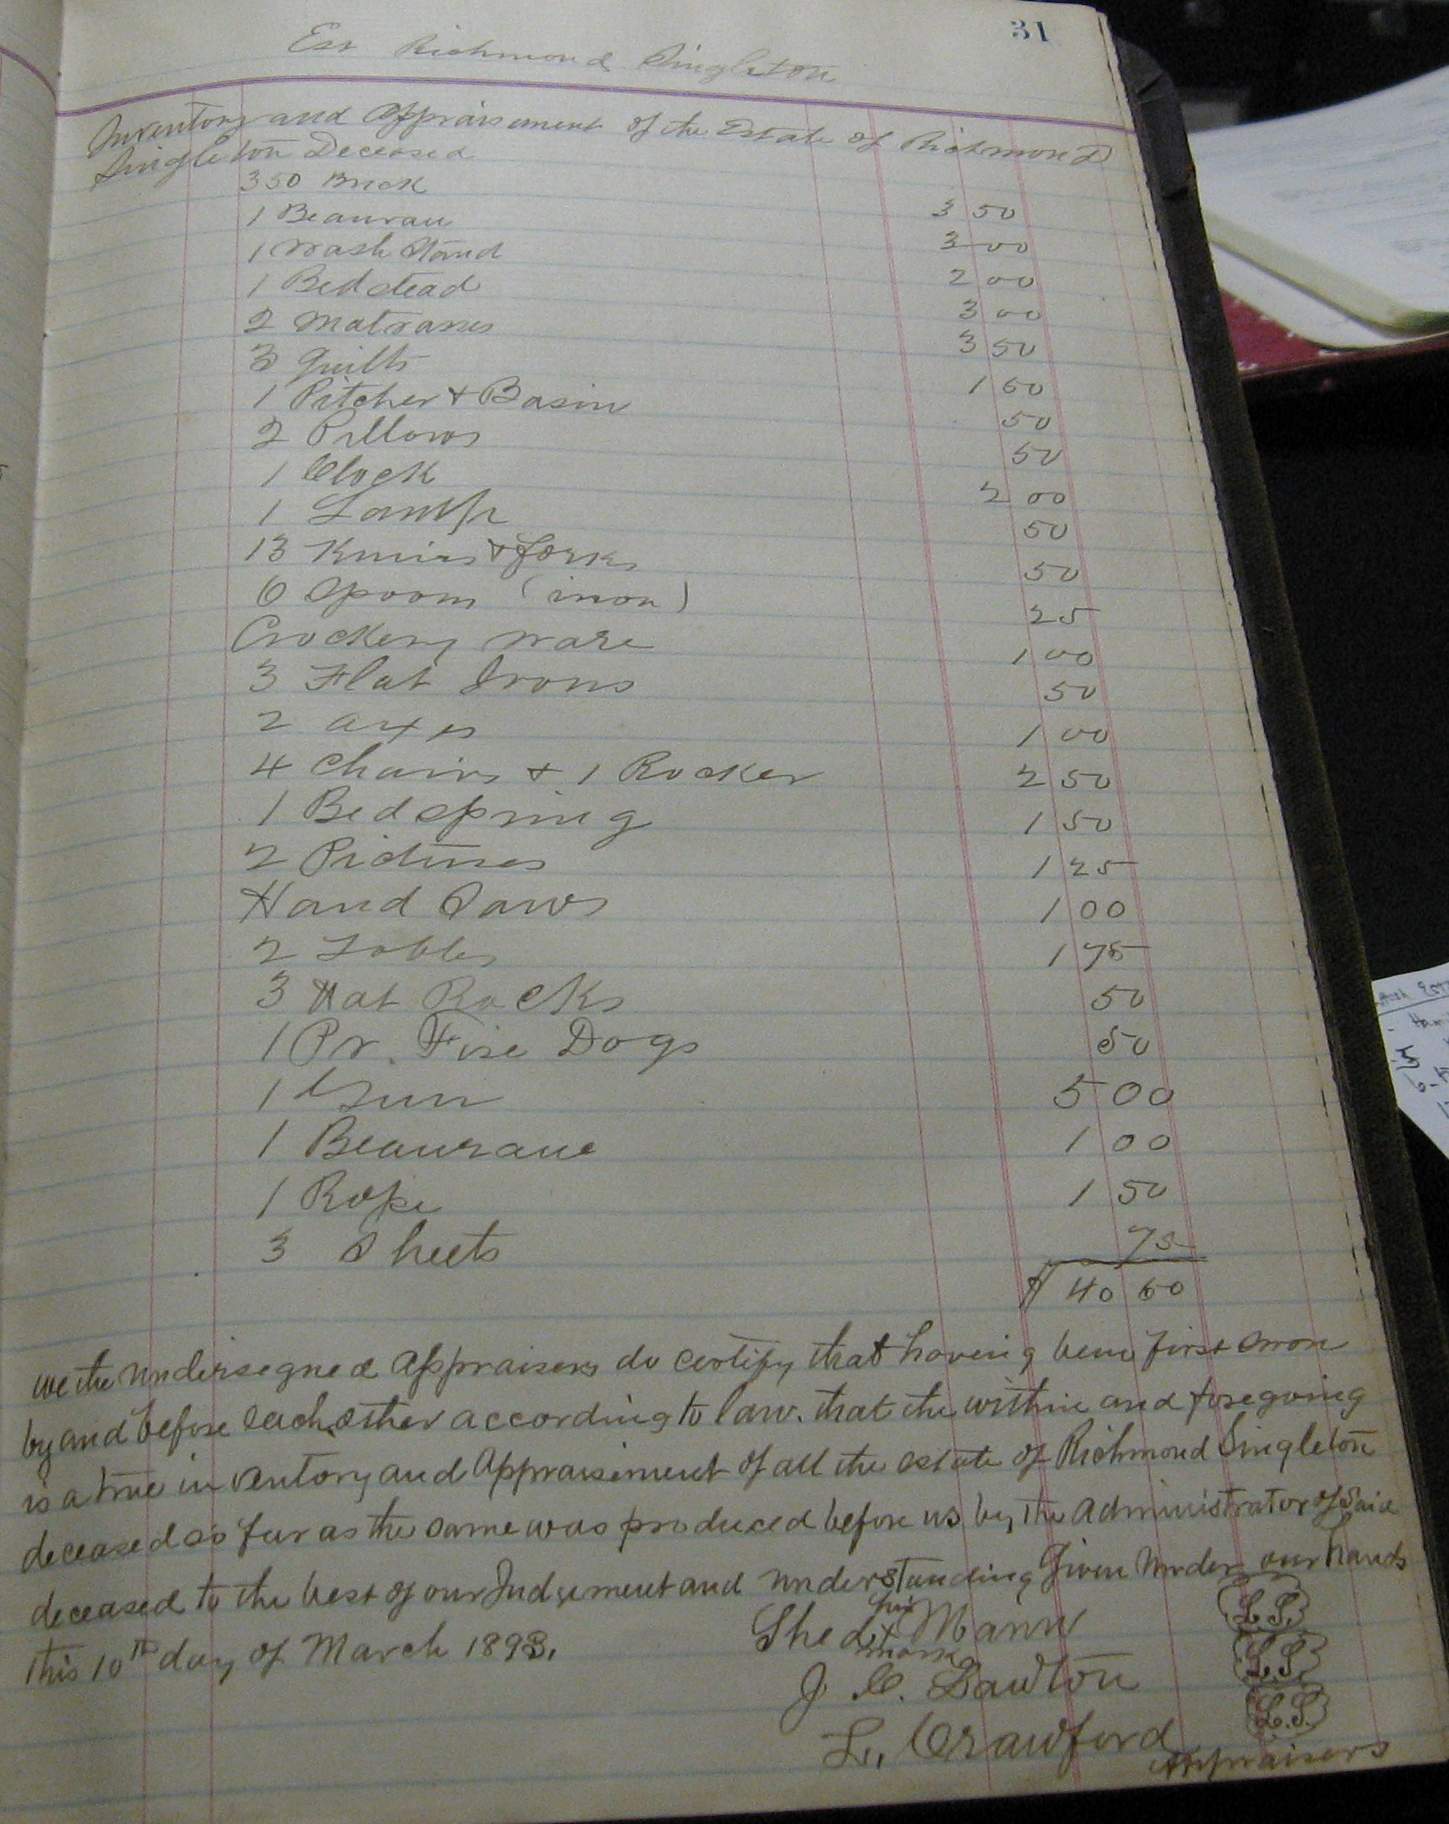 31
Est Richmond Singleton
Inventory and Appraisement of the Estate of Richmond
Singleton Deceased
350 Brick 3 50
1 Beaurau 3 00
1 Wash Stand 2 00
1 Bedstead 3 00
2 Matrasses 3 50
3 Quilts 1 60
1 Pitcher + Basin 50
2 Pillows 50
1 Clock 2 00
1 Lamp 50
13 Knives + forks 50
6 Spoons (iron) 25
Crockery ware 1 00
3 Flat Irons 50
2 axes 1 00
4 Chairs + 1 Rocker 2 50
1 Bed spring 1 50
2 Pictures 1 25
Hand Saws 1 00
2 Tables 1 75
3 Hat Racks 50
1 Pr. Fire Dogs 50
1 Gun 5 00
1 Beaurau 1 00
1 Rope 1 50
3 Sheets 75
$ 40 60
we the undersegned appraisers do certify that having been first sworn
by and before each other according to law. that the within and foregoing
is a true inventory and appraisement of all the estate of Richmond Singleton
deceased so far as the same was produced before us by the administrator of said
deceased to the best of our Judgement and understanding Given under our hands
this 10th day of March 1893.
Shed his x mark Mann L.S.
J. C. Lawton L.S.
L. Crawford L.S.
Appraisers